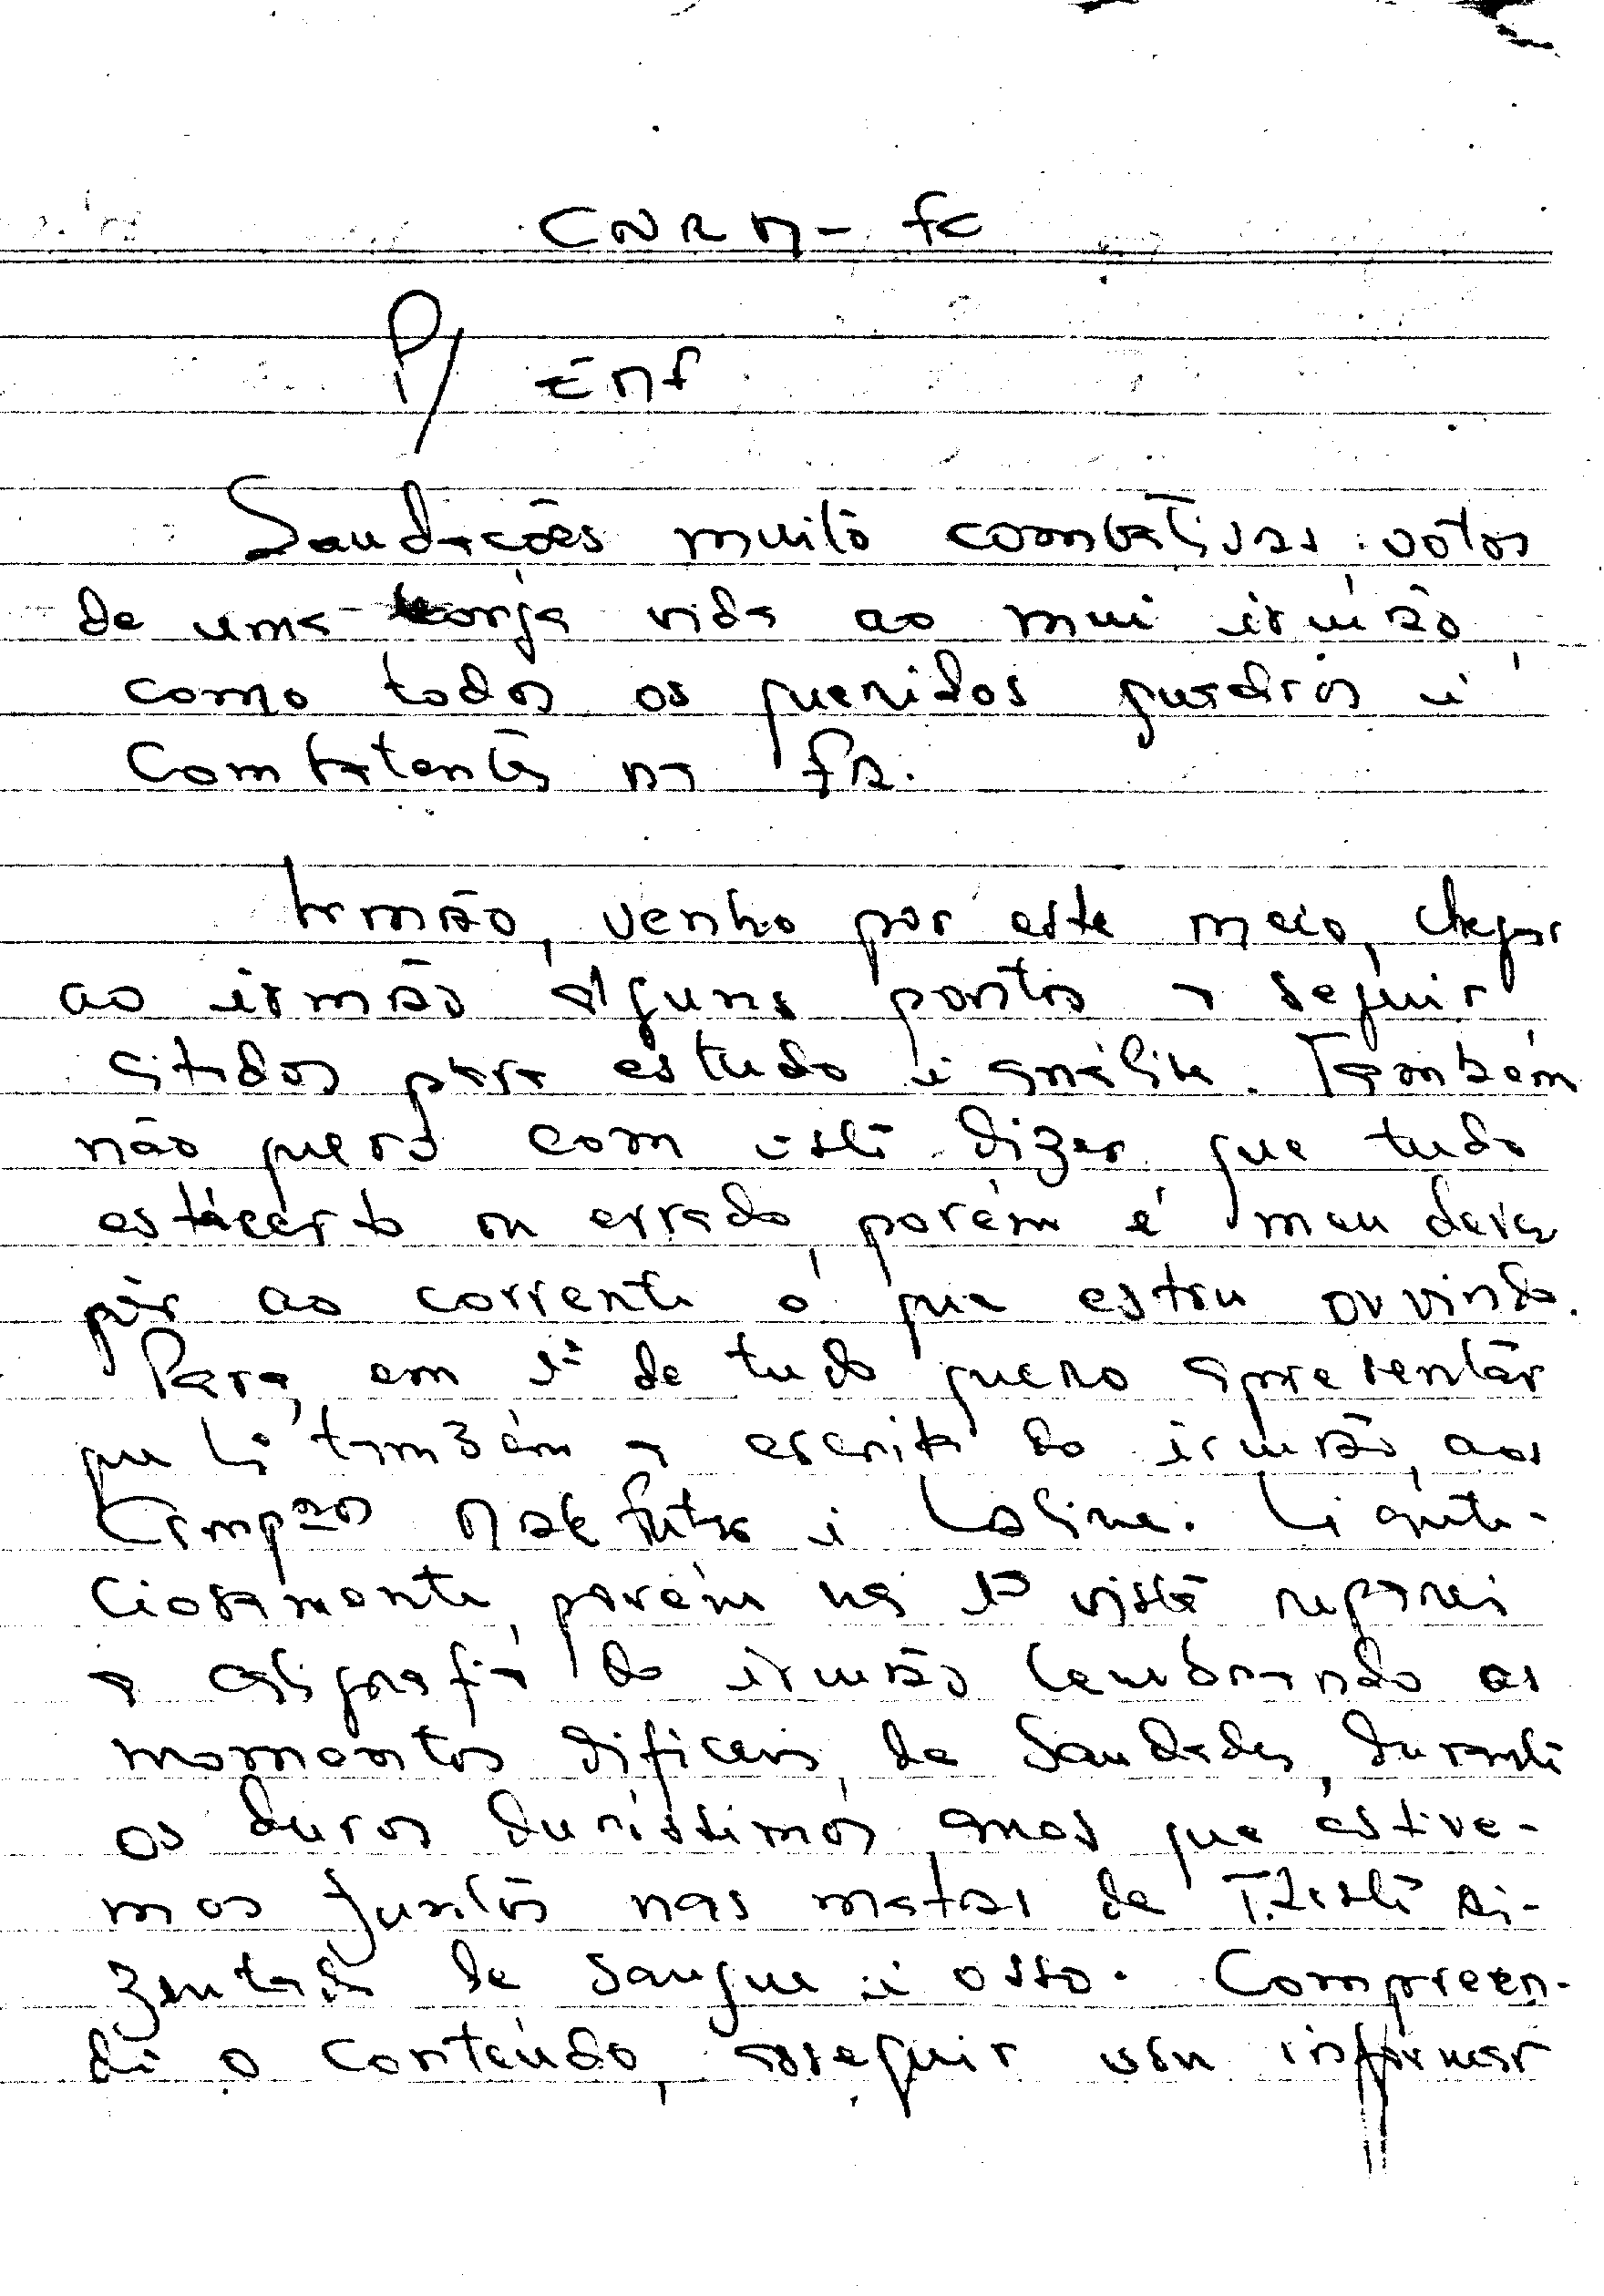 CNRM - FC
P/ EMF
Saudações muito combativas votos
de uma corija vida ao mui irmão
como todos os queridos quadros i
Combatentes na FR.
Irmão, venho por este meio, chegar
ao irmão alguns pontos a seguir
sitados para estudo i análise. Também
não quero com isti dizer que tudo
está certo ou errado, porém é meu dever
pôr ao corrente o que estou ouvindo.
Para, em 1º de tudo quero apresentar
que li também a escrita do irmão, aos
Camp as i Laline. Li
ciosamente, porém na 1ª vista reparei
a caligrafia do irmão lembrando os
momentos dificeis, de Saudades, durante
os duros duríssimos anos que estive-
mos juntos nas matas de
de sangue i osso. Compreen-
di o conteúdo, aseguir vou informar